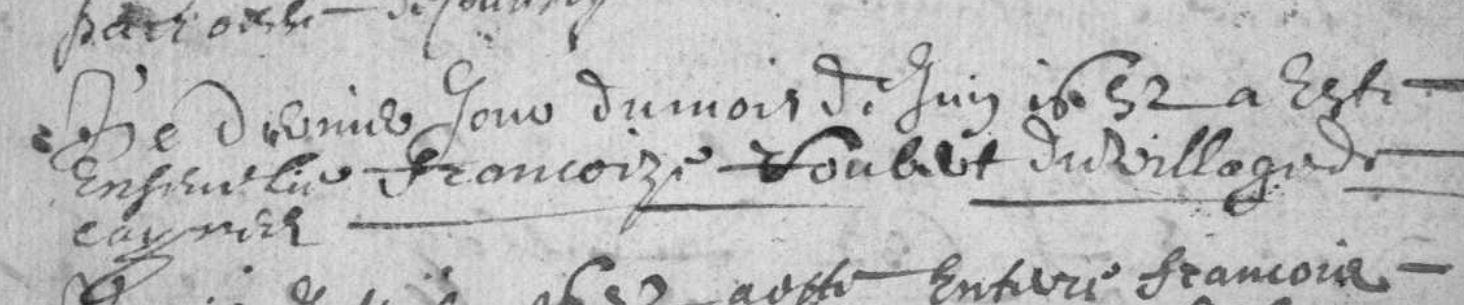 parroisse de
Le dernier Jour du mois de Juin 1652 a Este
Ensepvelie Francoize Loubert du village de
1652 a este Enterré francois